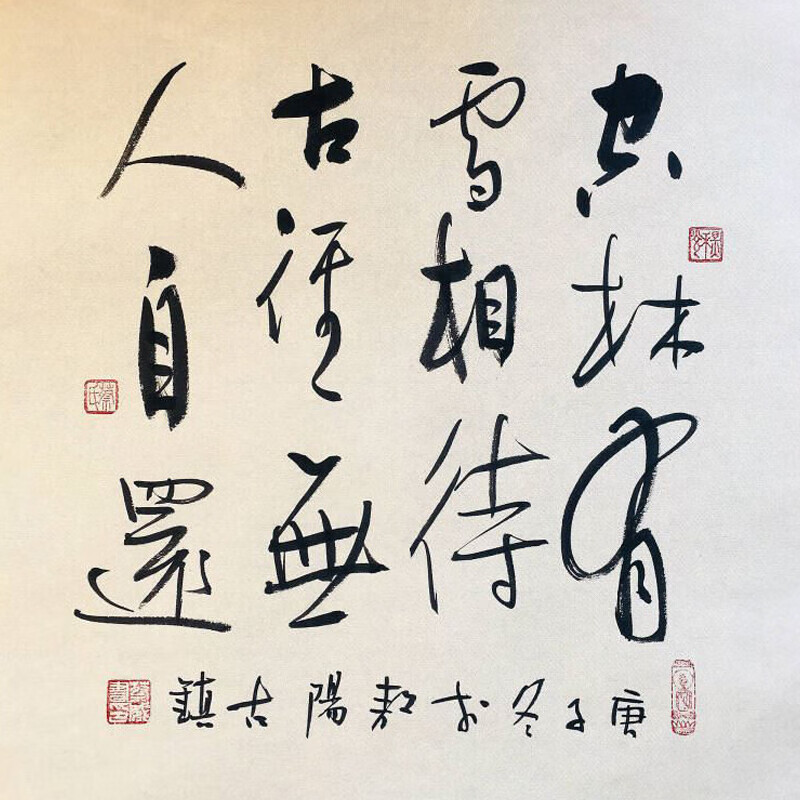 空林有
雪相待
古徑無
人自還
庚子冬於陽古鎮
蔡氏